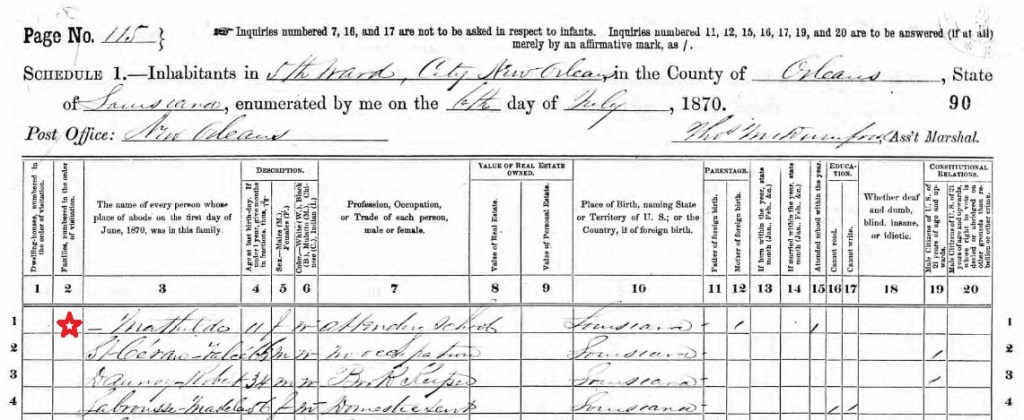 Page No. 115 } Inquiries numbered 7, 16, and 17 are not to be asked in respect to infants. Inquiries numbered 11, 12, 15, 16, 17, 19, and 20 are to be answered (if at all)
merely by an affirmative mark, as /.
SCHEDULE 1.—Inhabitants in 5th Ward, City New Orleans, in the County of Orleans, State
of Louisiana, enumerated by me on the 6th day of July, 1870. 90
Post Office: New Orleans Thos Ass't Marshal.
DESCRIPTION. VALUE OF REAL ESTATE OWNED. PARENTAGE. EDUCATION. CONSTITUTIONAL RELATIONS.
Dwelling-houses, numbered in order of visitation.
Families, numbered in the order of visitation.
The name of every person whose place of abode on the first day of June, 1870, was in this family.
Age at last birth-day. If under 1 year, give months in fractions, thus,
Sex—Males (M.), Females (F.)
Color—White (W.), Black (B.), Mulatto (M.), Chinese (C.), Indian (I.)
Profession, Occupation, or Trade of each person, male or female.
Value of Real Estate.
Value of Personal Estate.
Place of Birth, naming State or Territory of U. S.; or the Country, if of foreign birth.
Father of foreign birth.
Mother of foreign birth.
If born within the year, state month (Jan. Feb., &c.)
If married within the year, state month (Jan., Feb., &c.)
Attended school within the year.
Cannot read.
Cannot write.
Whether deaf and dumb, blind, insane, or idiotic.
Male Citizens of U. S. of 21 years of age and upwards.
Male Citizens of U. S. of 21 years of age and upwards, where right to vote is denied or abridged on other grounds than rebellion or other crime.
1 2 3 4 5 6 7 8 9 10 11 12 13 14 15 16 17 18 19 20
1 — Mathilde 11 f w attending School Louisiana / / 1
2 St Céran m w no occupation Louisiana / 2
3 Robert 34 m w Book Keeper Louisiana / 3
4 Labrousse 56 f Domestic Servt Louisiana / / 4